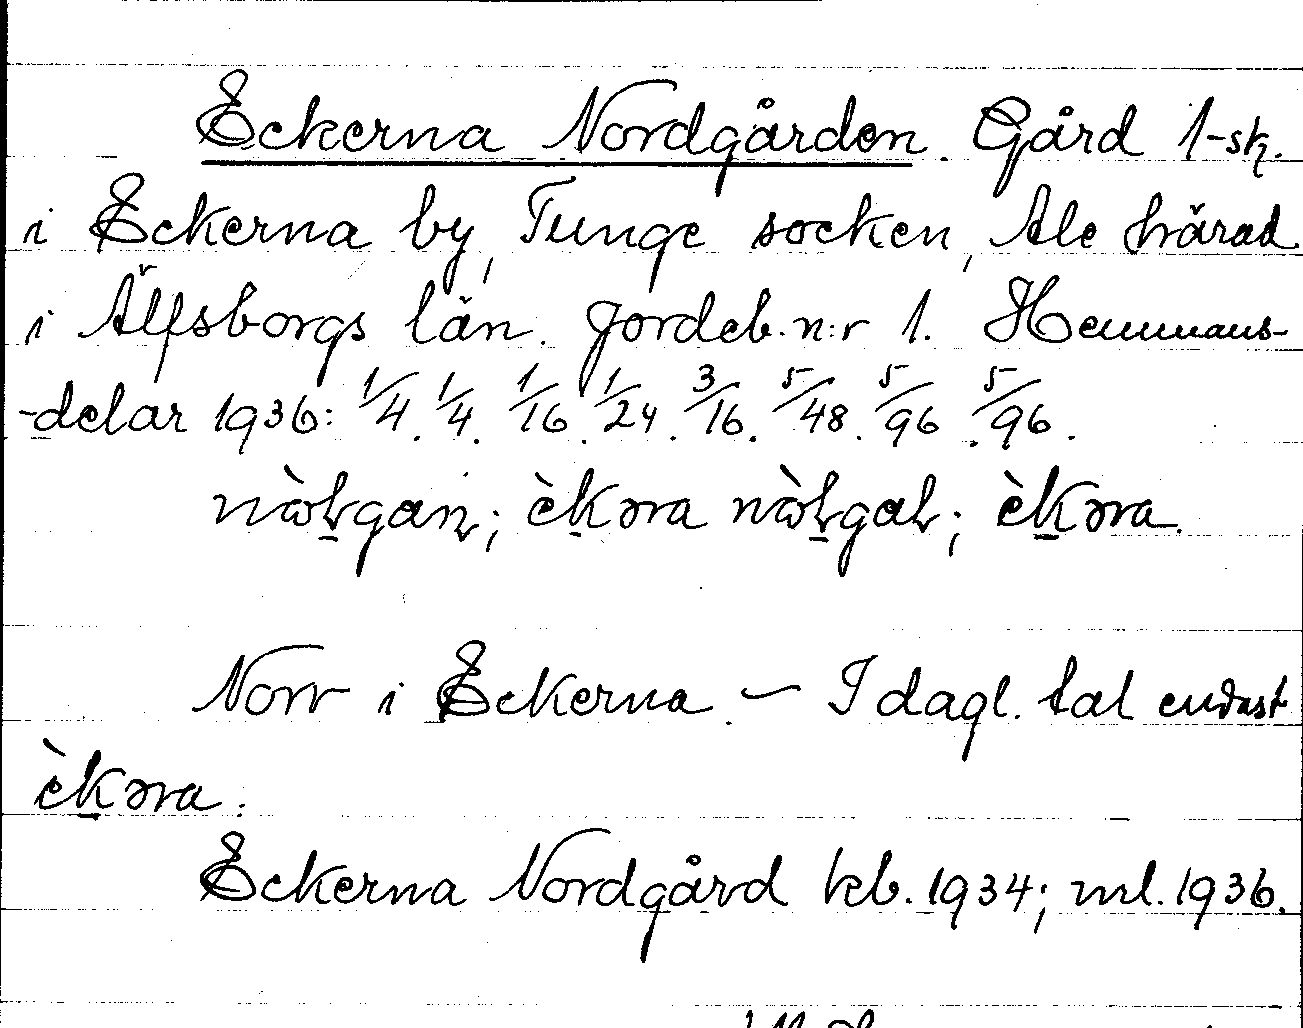 Eckerna Nordgården. Gård 1-sk.
i Eckerna by, Tunge socken, Ale härad
i Älfsborgs län. Jordeb. n:r 1. Hemmans-
-delar 1936: 1/4. 1/4. 1/16. 1/24. 3/16. 5/48. 5/96. 5/96.
èkəra
Norr i Eckerna. – I dagl. tal endast
èkəra.
Eckerna Nordgård kb. 1934; ml. 1936.